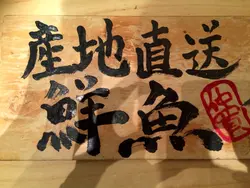 産地直送
鮮魚